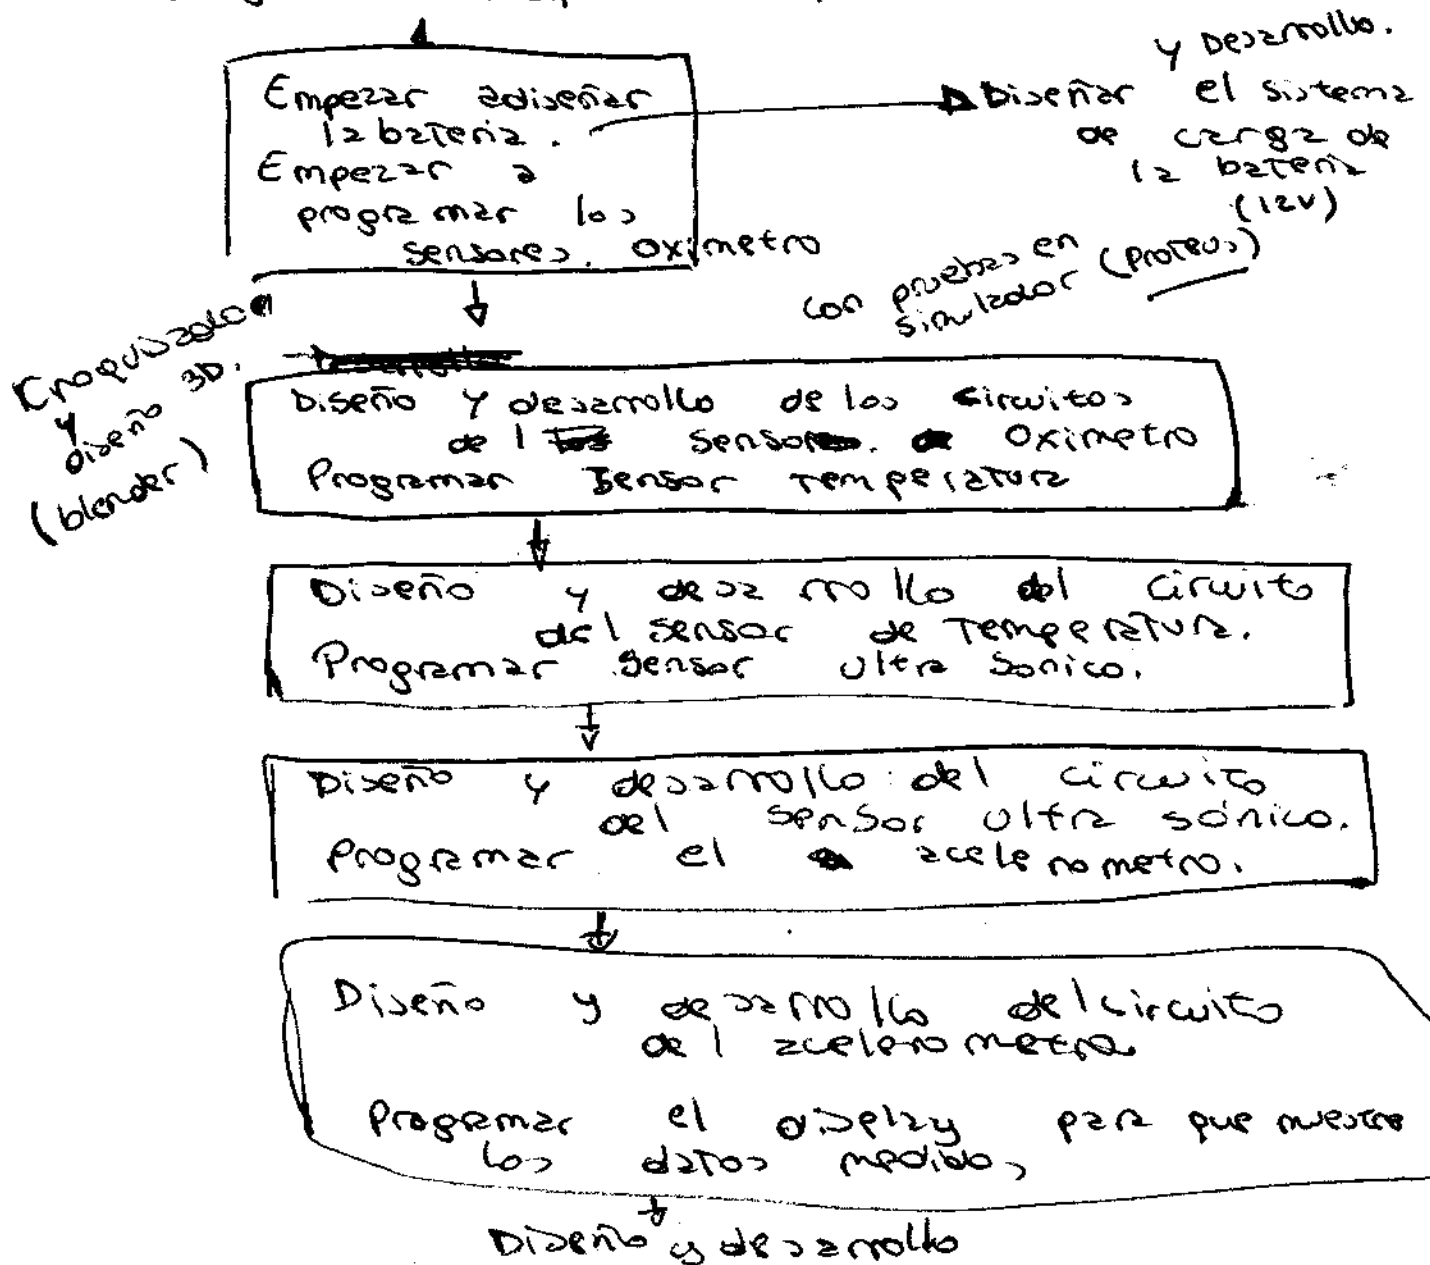 Empezar a diseñar
la bateria.
Empezar a
programar los
sensores. oximetro
y Desarrollo.
Diseñar el sistema
de carga de
la bateria
(12V)
con pruebas en
simulador (Proteus)
Croquizado
y
diseño 3D.
(blender)
Diseño y desarrollo de los circuitos
del sensor. Oximetro
Programar Sensor Temperatura
Diseño y desarrollo del circuito
del sensor de Temperatura.
Programar Sensor ultra Sonico.
Diseño y desarrollo del circuito
del Sensor Ultra sónico.
Programar el acelerometro.
Diseño y desarrollo del circuito
del acelerometro
Programar el display para que muestre
los datos medidos
Diseño y desarrollo